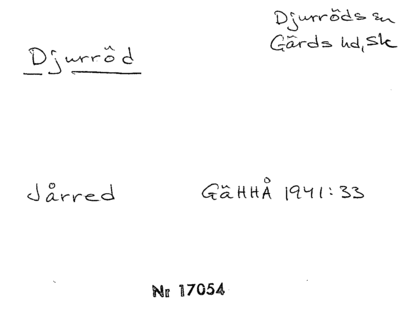 Djurröds sn
Gärds hd, Sk
Djurröd
Jårred GäHHÅ 1941:33
Nr 17054